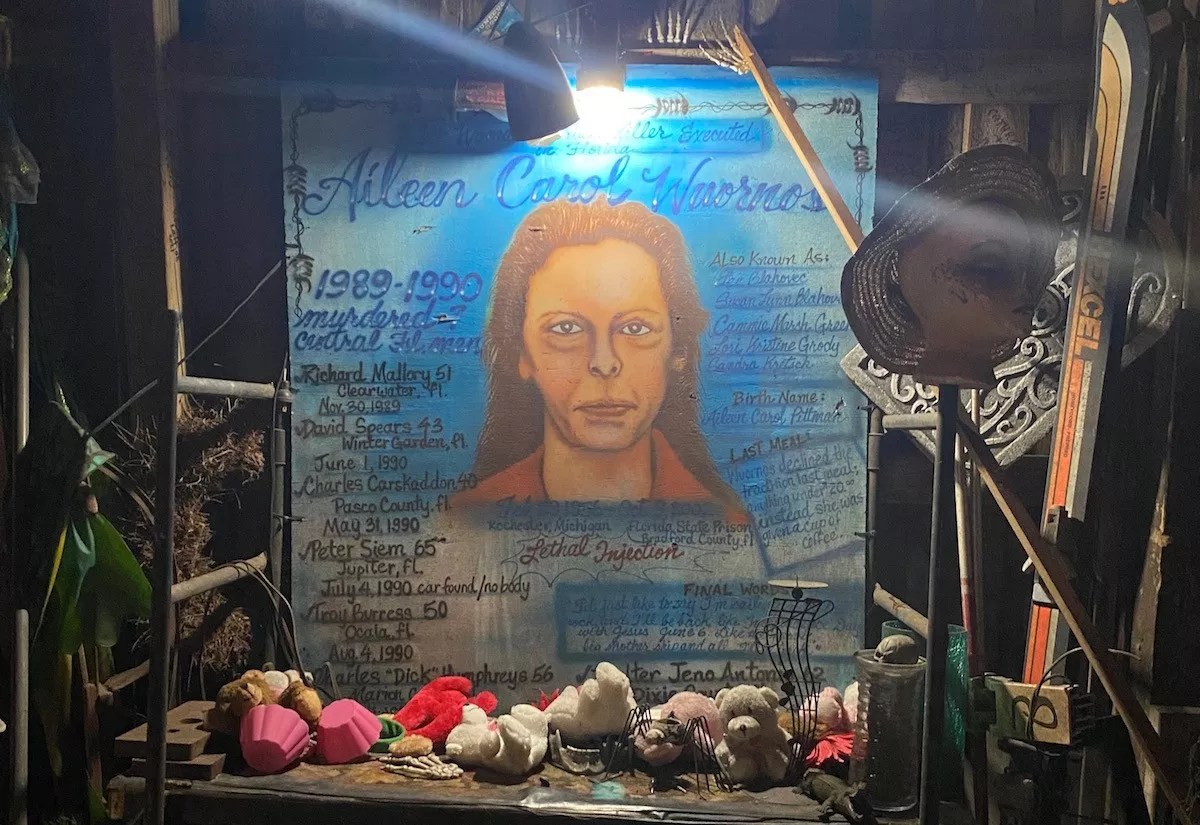 Killer Executed
in Florida
Aileen Carol Wuornos
1989-1990
murdered 7
Central Fl. men
Richard Mallory 51
Clearwater, Fl.
Nov. 30, 1989
David Spears 43
Winter Garden, Fl
June 1, 1990
Charles Carskaddon 40
Pasco County, Fl.
May 31, 1990
Peter Siem 65
Jupiter, FL.
July 4, 1990 car found/no body
Troy Burress 50
Ocala, Fl.
Aug 4, 1990
Charles "Dick" Humphreys 56
Marion
Walter Jeno Anton
Dixie
Also Known As:
Susan Lynn Blahov
Cammie Marsh Green
Lori Kristine Grody
Sandra Kretsch
Birth Name:
Aileen Carol Pittman
LAST MEAL:
Wuornos declined the
last meal;
anything under 20
instead she was
given a cup of
coffee.
Rochester, Michigan
Florida State Prison
Bradford County, Fl
Lethal Injection
FINAL WORDS
I'd just like to say I'm
rock, and I'll be back like
with Jesus June 6 Like
big mother ship and all
EXCEL